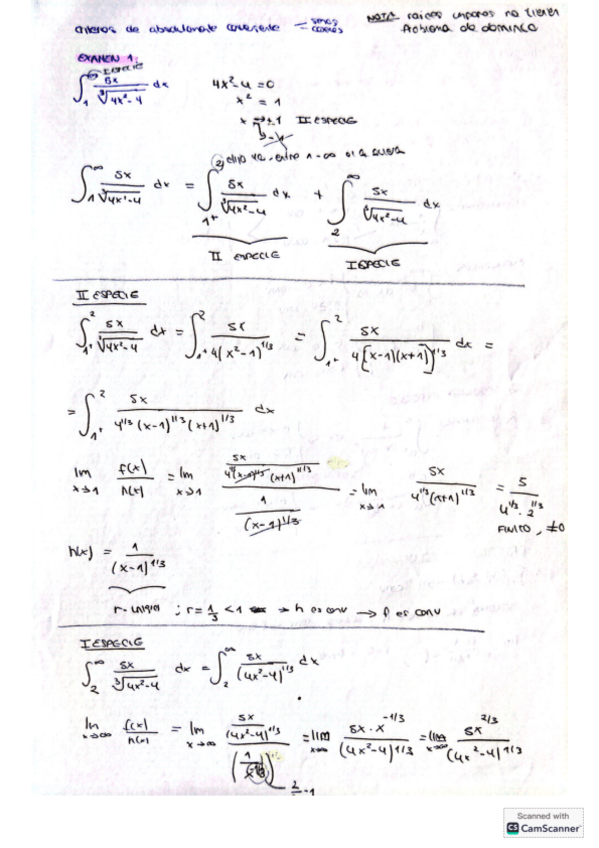 criterios de absolutamente convergente
NOTA: raices impares no tienen
problema de dominio
EXAMEN 1:
I ESPECIE
∫₁^∞ 5x/∛(4x²-4) dx    4x²-4=0
x² = 1
x = ±1 II ESPECIE
∫₁^∞ 5x/∛(4x²-4) dx = ∫₁₊² 5x/∛(4x²-4) dx + ∫₂^∞ 5x/∛(4x²-4) dx
II ESPECIE    I ESPECIE
II ESPECIE
∫₁₊² 5x/∛(4x²-4) dx = ∫₁₊² 5x/4(x²-1)^1/3 = ∫₁₊² 5x/4[(x-1)(x+1)]^1/3 dx =
= ∫₁₊² 5x/4^1/3 (x-1)^1/3 (x+1)^1/3 dx
lim x→1 f(x)/h(x) = lim x→1 (5x/4^1/3 (x-1)^1/3 (x+1)^1/3)/(1/(x-1)^1/3) = lim x→1 5x/4^1/3 (x+1)^1/3 = 5/4^1/3 · 2^1/3
FINITO, ≠0
h(x) = 1/(x-1)^1/3
; r = 1/3 < 1 → h es conv → f es conv
I ESPECIE
∫₂^∞ 5x/∛(4x²-4) dx = ∫₂^∞ 5x/(4x²-4)^1/3 dx
lim x→∞ f(x)/h(x) = lim x→∞ 5x/(4x²-4)^1/3 = lim x→∞ 5x·x^-1/3/(4x²-4)^1/3 = lim x→∞ 5x^2/3/(4x²-4)^1/3
Scanned with
CS CamScanner